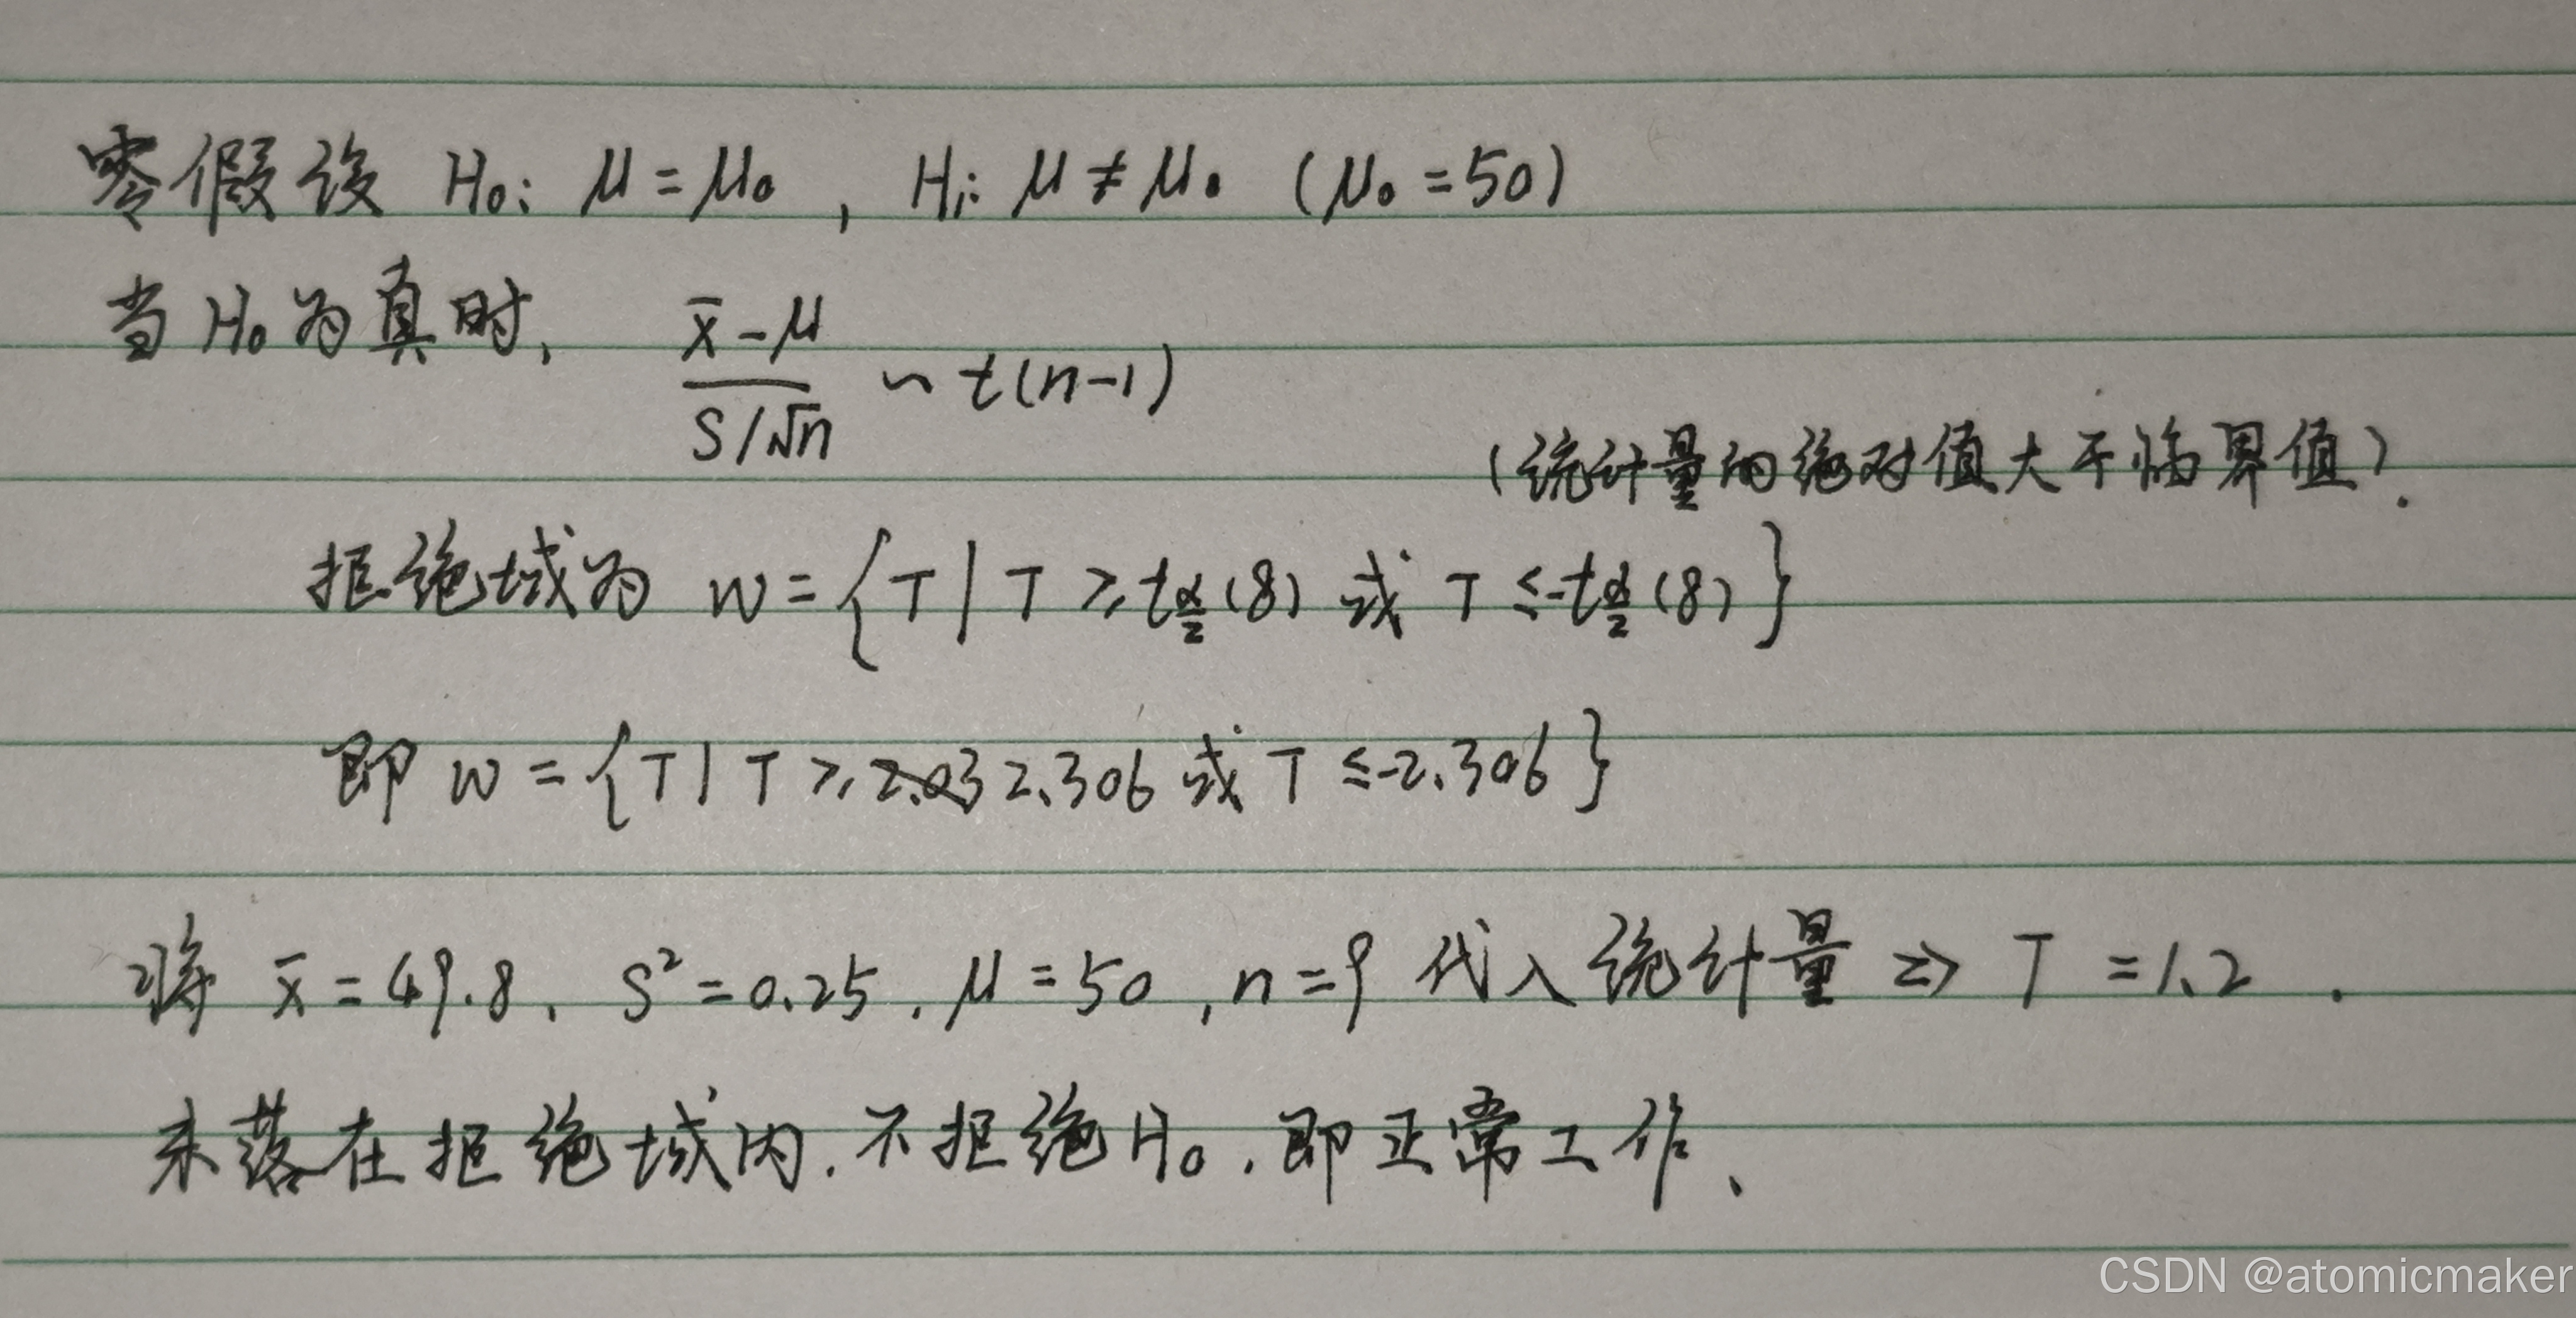 零假设 H₀: μ = μ₀ , H₁: μ ≠ μ₀ (μ₀ = 50)
当 H₀ 为真时, (x̄ - μ) / (S/√n) ~ t(n-1)
(统计量的绝对值大于临界值).
拒绝域为 W = { T | T ≥ t_{α/2}(8) 或 T ≤ -t_{α/2}(8) }
即 W = { T | T ≥ 2.03 2.306 或 T ≤ -2.306 }
将 x̄ = 49.8, S² = 0.25, μ = 50, n = 9 代入统计量 => T = 1.2 .
未落在拒绝域内, 不拒绝 H₀, 即正常工作、
CSDN @atomicmaker